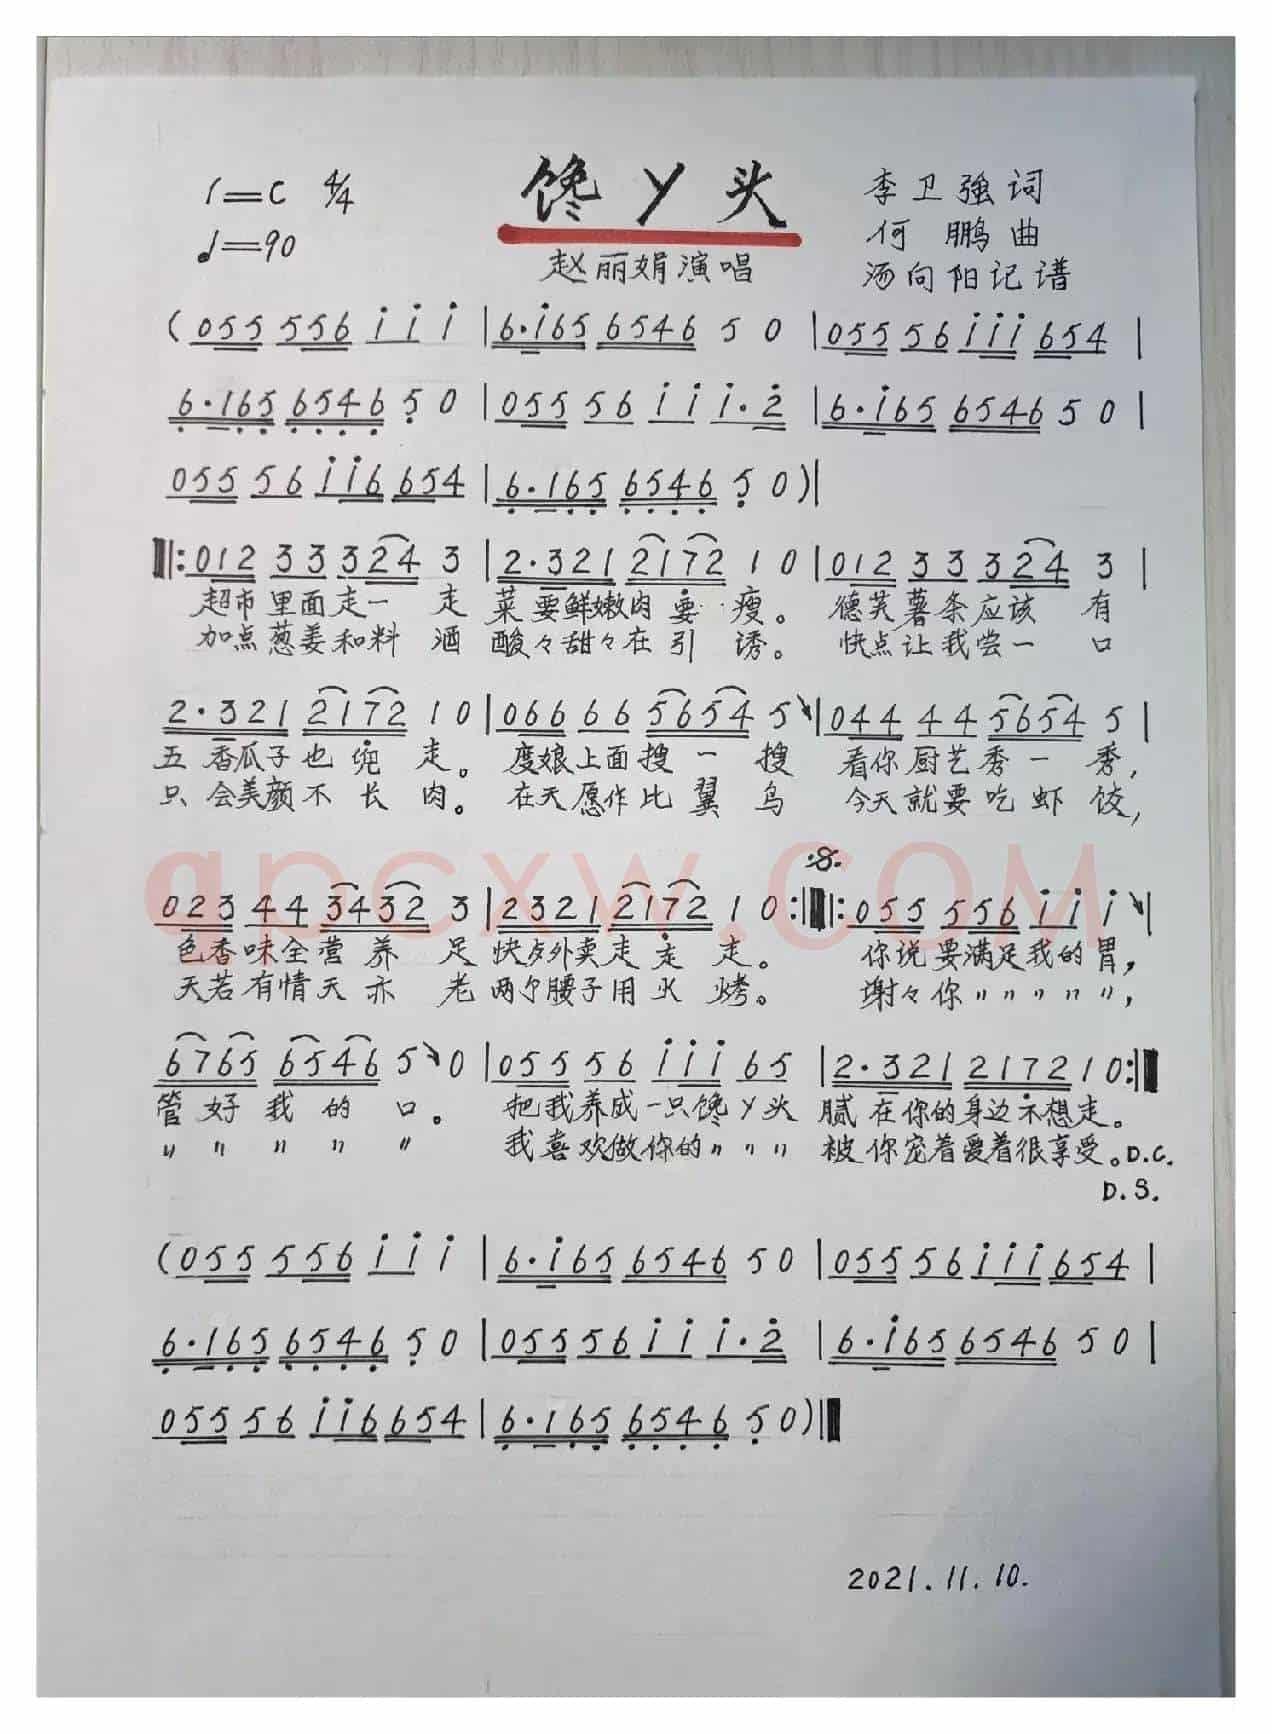 1=C 4/4
馋丫头
李卫强词
♩=90
何鹏曲
赵丽娟演唱
汤向阳记谱
(055 556 i i i |6·i65 6546 5 0 |055 56 iii 654 |
6·165 6546 5 0 |055 56 i i i·2 |6·i65 6546 5 0 |
055 56 ii6 654 |6·165 6546 5 0)|
‖:012 33 324 3 |2·321 2172 1 0 |012 33 324 3 |
超市里面走一走 菜要鲜嫩肉要瘦。 德芙薯条应该有
加点葱姜和料酒 酸々甜々在引诱。 快点让我尝一口
2·321 2172 1 0 |066 66 5654 5↘|044 44 5654 5 |
五香瓜子也兜走。 度娘上面搜一搜 看你厨艺秀一秀,
只会美颜不长肉。 在天愿作比翼鸟 今天就要吃虾饺,
apcxw.COM
023 44 3432 3 |2321 2172 1 0:‖:055 556 i i i↘|
色香味全营养足 快点外卖走走走。 你说要满足我的胃,
天若有情天亦老 两个腰子用火烤。 谢々你〃〃〃〃〃,
6765 6546 5↘0 |055 56 iii 65 |2·321 2172 1 0:‖
管好我的口。 把我养成一只馋丫头 腻在你的身边不想走。
〃〃〃〃〃 我喜欢做你的〃〃〃 被你宠着爱着很享受。D.C.
D.S.
(055 556 i i i |6·i65 6546 5 0 |055 56 iii 654 |
6·165 6546 5 0 |055 56 i i i·2 |6·i65 6546 5 0 |
055 56 ii6 654 |6·165 6546 5 0)‖
2021.11.10.